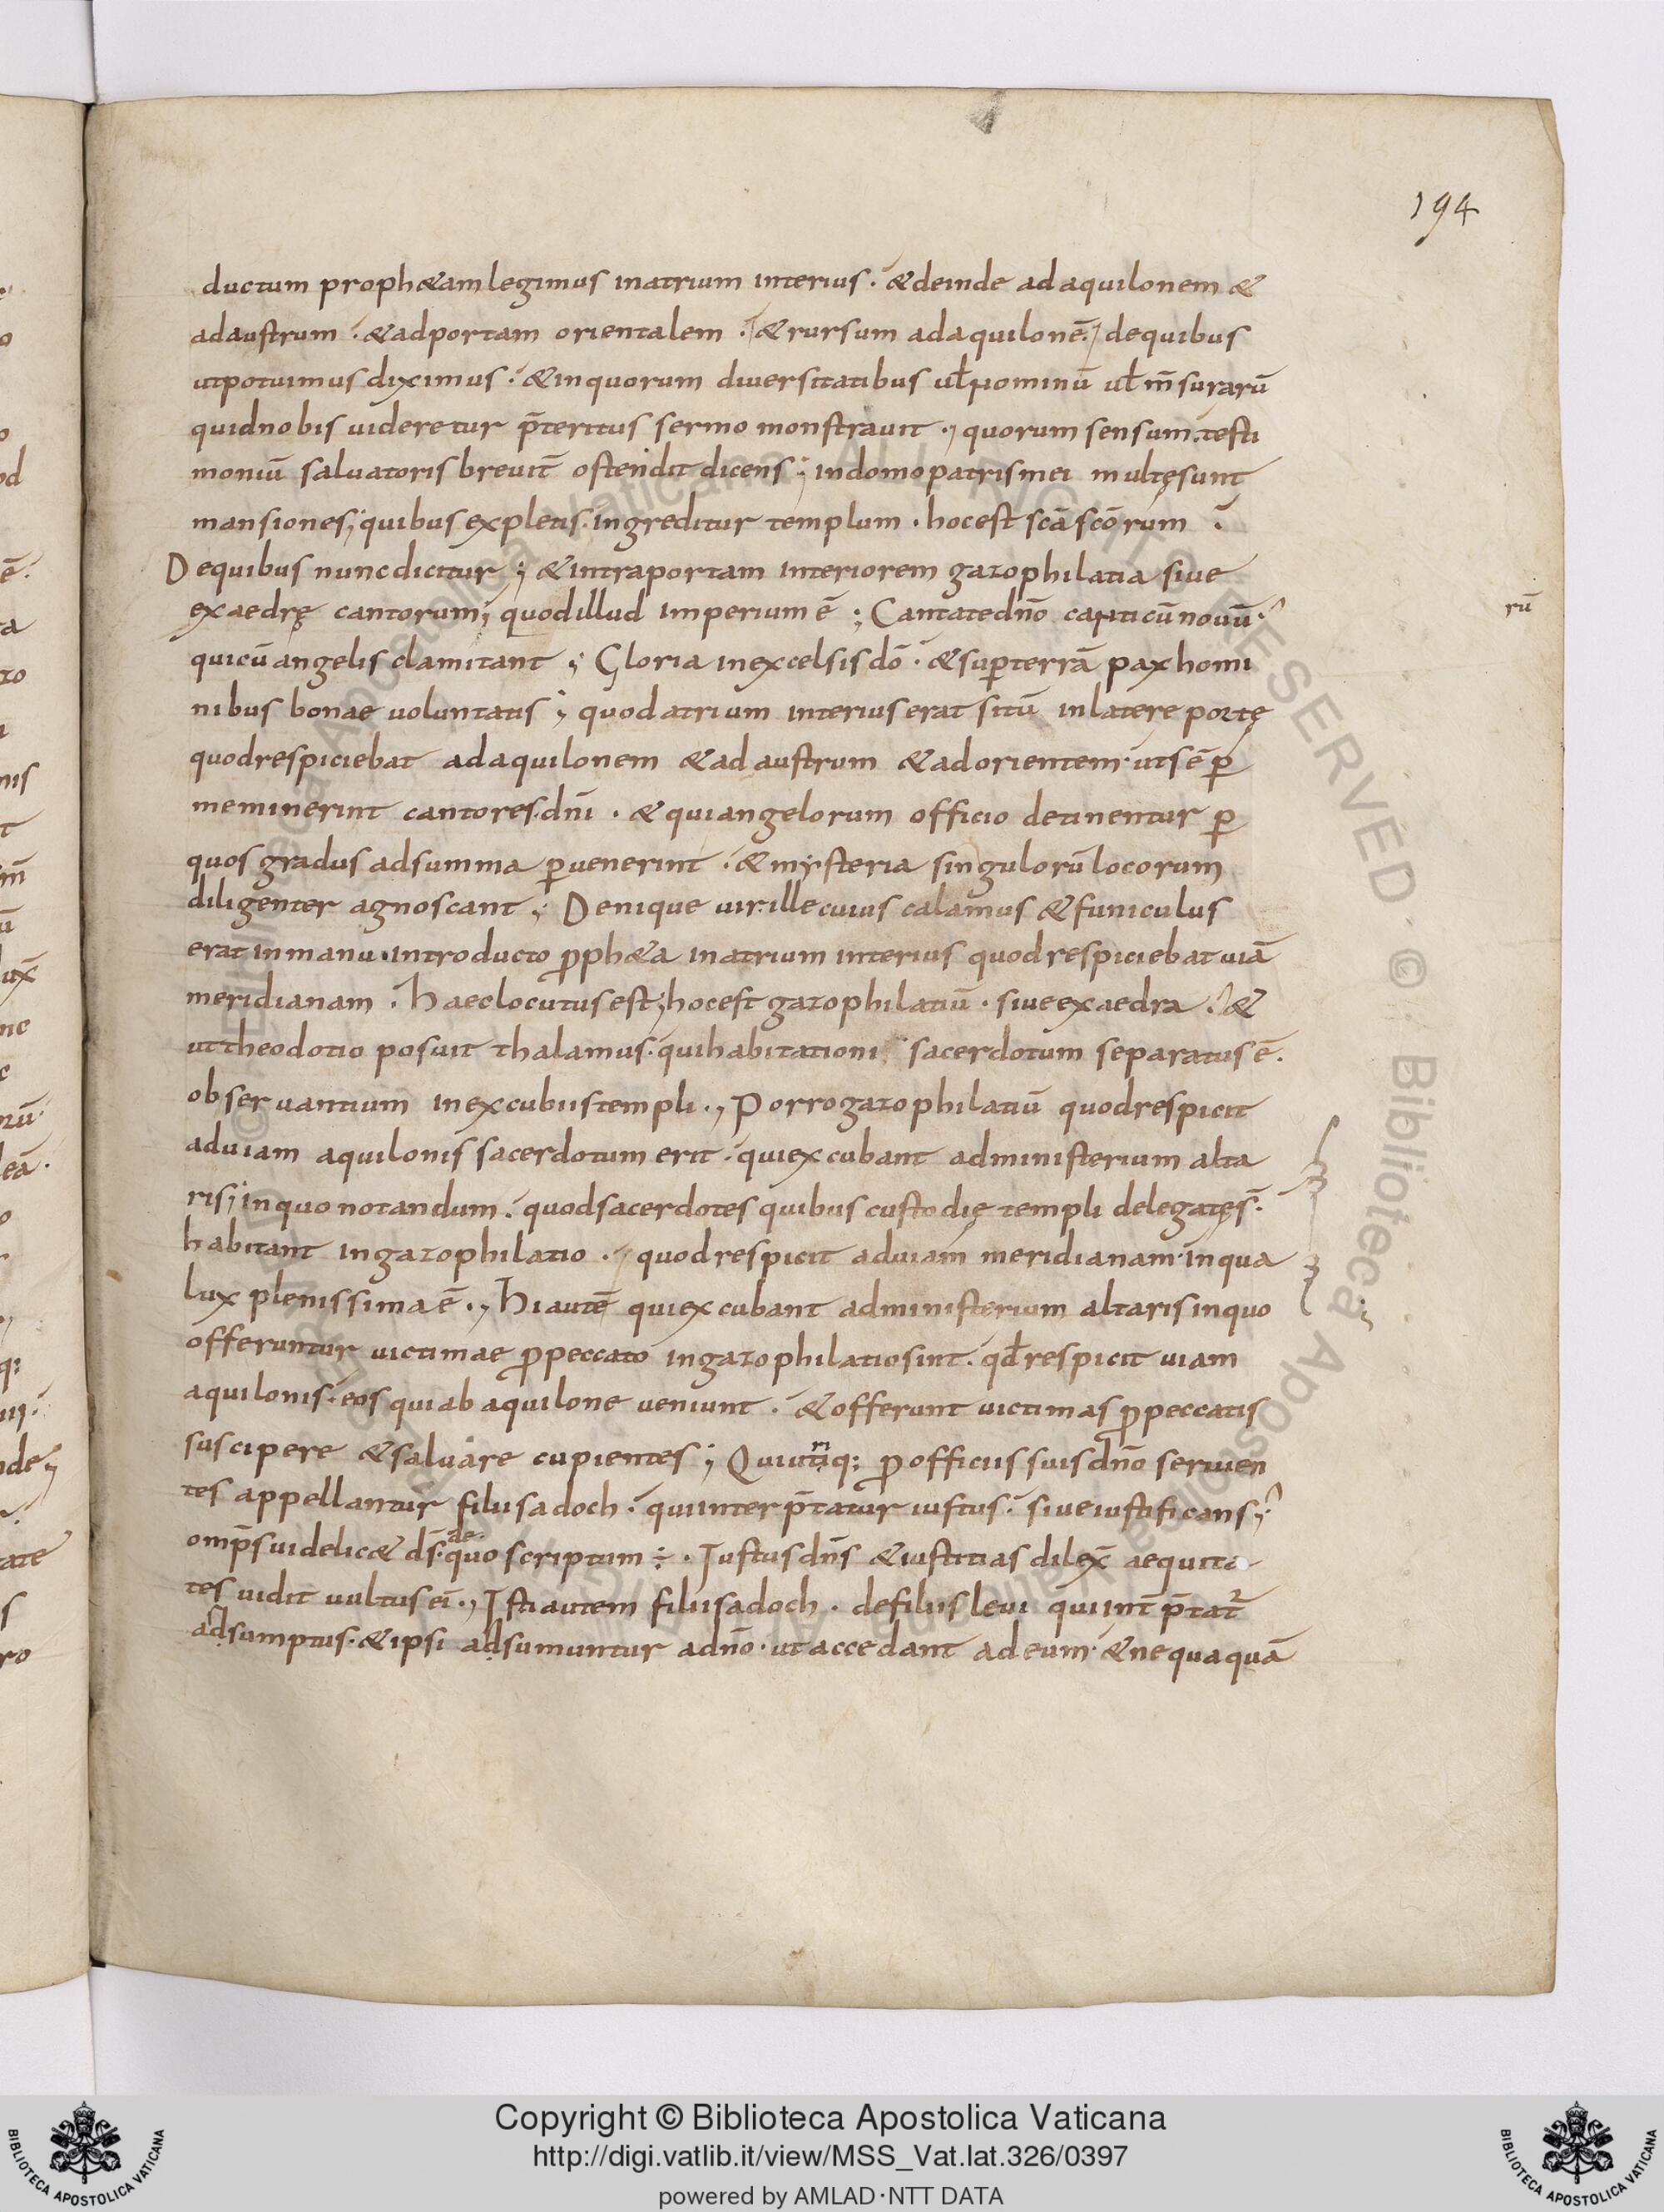 194
ductum proph&am legimus in atrium interius . & deinde ad aquilonem &
ad austrum . & ad portam orientalem . & rursum ad aquilonē . de quibus
ut potuimus diximus . & in quorum diversitatibus ul̄ hominū ul̄ m̄surarū
quid nobis uideretur p̄teritus sermo monstrauit ., quorum sensum testi
moniū saluatoris breuit̄ ostendit dicens ; in domo patris mei multę sunt
mansiones ; quibus expletis . ingreditur templum . hoc est scā scōrum .
De quibus nunc dicitur ; & intra portam interiorem gazophilatia siue
exaedrę cantorum ; quod illud imperium ē ; Cantate dn̄o canticū nouū .
rū
qui cū angelis clamitant ; Gloria in excelsis dō . & sup̄ terrā pax homi
nibus bonae uoluntatis ; quod atrium interius erat sitū in latere portę
quod respiciebat ad aquilonem & ad austrum & ad orientem . ut sēp̄
meminerint cantores dn̄i . & qui angelorum officio detinentur p̄
quos gradus ad summa p̄uenerint . & mysteria singulorū locorum
diligenter agnoscant ; Denique uir ille cuius calamus & funiculus
erat in manu . introducto p̄ph&a in atrium interius quod respiciebat uiā
meridianam . haec locutus est ; hoc est gazophilatiū . siue exaedra . &
ut theodotio posuit thalamus . qui habitationi sacerdotum separatus ē .
obseruantium in excubiis templi ., Porro gazophilatiū quod respicit
ad uiam aquilonis sacerdotum erit . qui excubant ad ministerium alta
ris ; in quo notandum . quod sacerdotes quibus custodię templi delegatę s̄ .
habitant in gazophilatio . quod respicit ad uiam meridianam . in qua
lux plenissima ē ., Hi autē qui excubant ad ministerium altaris in quo
offeruntur uictimae p̄ peccato in gazophilatio sint . qd̄ respicit uiam
aquilonis . eos qui ab aquilone ueniunt . & offerunt uictimas p̄ peccatis
suscipere & saluare cupientes ; Qui utriq; p̄ officiis suis dn̄o seruien
tes appellantur filii sadoch . qui interp̄tatur iustus . siue iustificans ;
omp̄s uidelic& ds̄ . de quo scriptum ÷ . Iustus dn̄s & iustitias dilex̄ aequita
tes uidit uultus ei̅ ., Isti autem filii sadoch . de filiis leui qui int̄p̄tat̄
adsumptus . & ipsi adsumuntur a dn̄o . ut accedant ad eum . & nequaquā
Copyright © Biblioteca Apostolica Vaticana
http://digi.vatlib.it/view/MSS_Vat.lat.326/0397
powered by AMLAD·NTT DATA
BIBLIOTECA APOSTOLICA VATICANA
BIBLIOTECA APOSTOLICA VATICANA